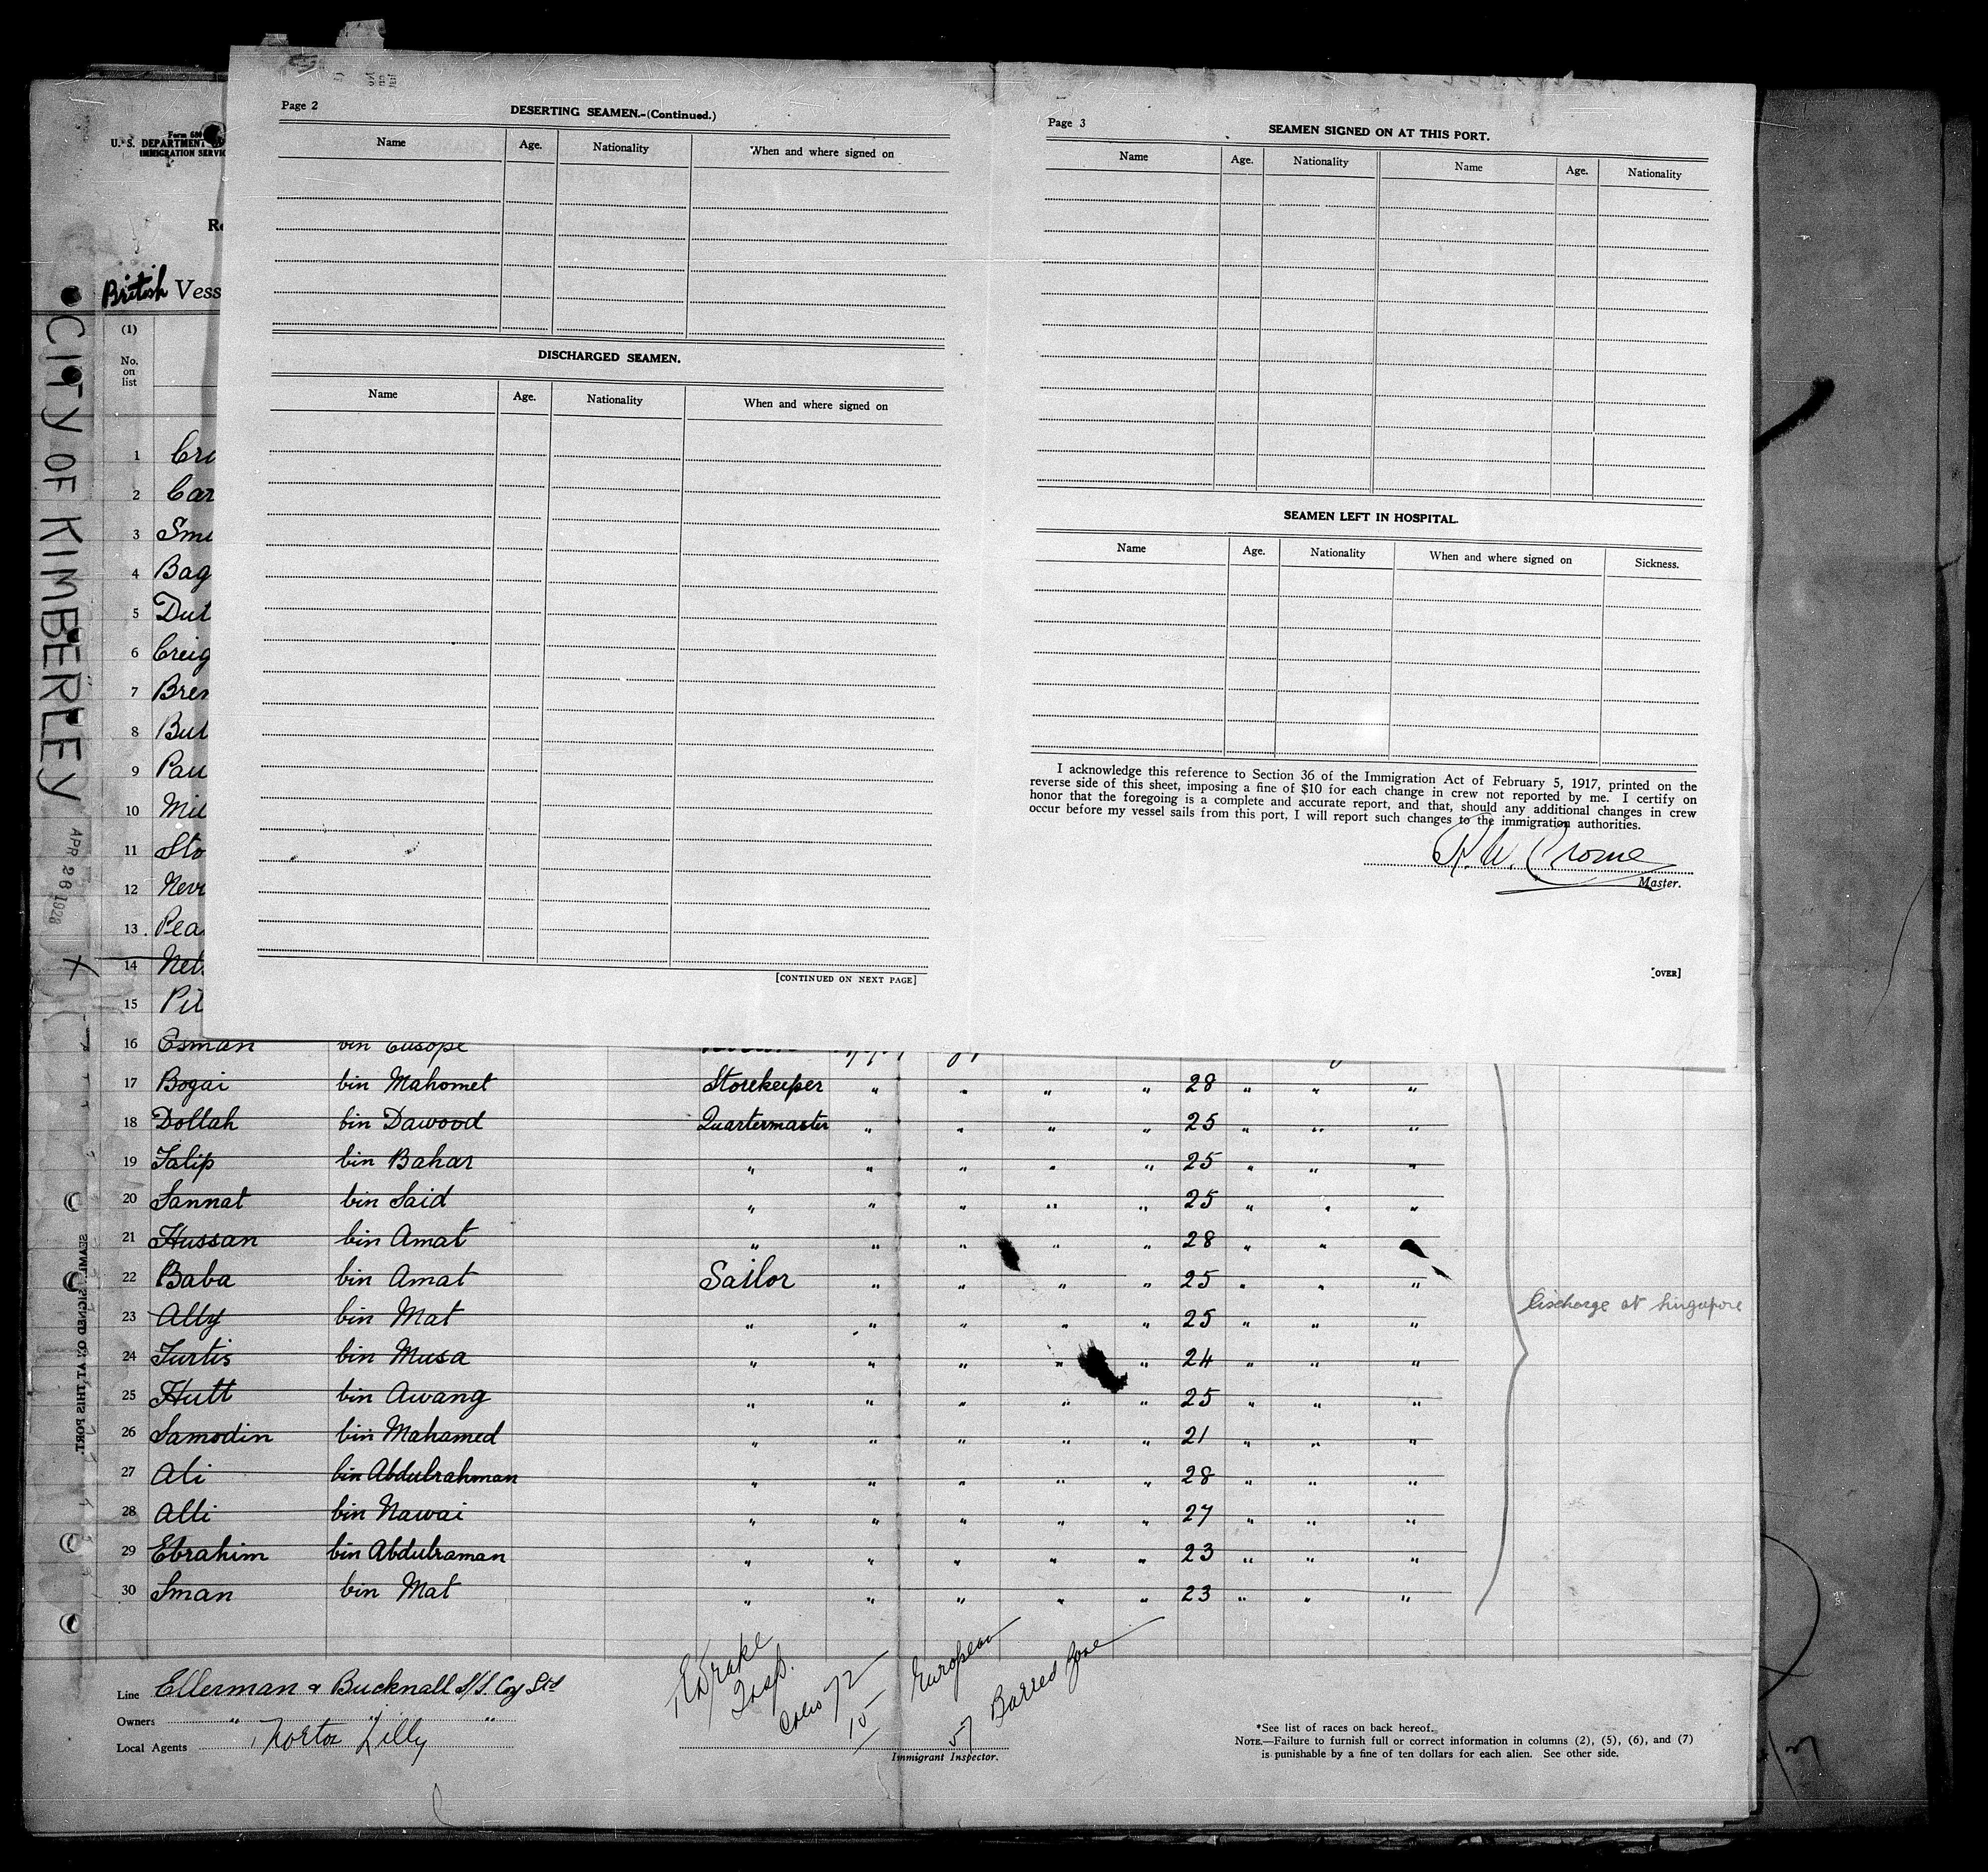 Page 2
DESERTING SEAMEN.-(Continued.)
Name Age. Nationality When and where signed on
DISCHARGED SEAMEN.
Name Age. Nationality When and where signed on
[CONTINUED ON NEXT PAGE]
Page 3
SEAMEN SIGNED ON AT THIS PORT.
Name Age. Nationality Name Age. Nationality
SEAMEN LEFT IN HOSPITAL.
Name Age. Nationality When and where signed on Sickness.
I acknowledge this reference to Section 36 of the Immigration Act of February 5, 1917, printed on the
reverse side of this sheet, imposing a fine of $10 for each change in crew not reported by me. I certify on
honor that the foregoing is a complete and accurate report, and that, should any additional changes in crew
occur before my vessel sails from this port, I will report such changes to the immigration authorities.
Crome
Master.
[OVER]
Form 680
U. S. DEPARTMENT
IMMIGRATION SERVIC
British Vess
CITY OF KIMBERLEY
APR 26 1928
SEAMEN SIGNED ON AT THIS PORT.
(1)
No.
on
list
1 Cra
2 Car
3 Smi
4 Bag
5 Dut
6 Creig
7 Bren
8 But
9 Pau
10 Mil
11 Sto
12 Nevi
13 Pea
14 Net
15 Pil
16 Esman bin Eusope
17 Bogai bin Mahomet Storekeeper " " " " 28 " " "
18 Dollah bin Dawood Quartermaster " " " " 25 " " "
19 Talip bin Bahar " " " " " 25 " " "
20 Sannat bin Said " " " " " 25 " " "
21 Hussan bin Amat " " " " " 28 " " "
22 Baba bin Amat Sailor " " " " 25 " " "
23 Ally bin Mat " " " " " 25 " " "
24 Turtis bin Musa " " " " " 24 " " "
25 Hutt bin Awang " " " " " 25 " " "
26 Samodin bin Mahamed " " " " " 21 " " "
27 Ali bin Abdulrahman " " " " " 28 " " "
28 Alli bin Nawai " " " " " 27 " " "
29 Ebrahim bin Abdulraman " " " " " 23 " " "
30 Sman bin Mat " " " " " 23 " " "
Discharge at Singapore
Line Ellerman & Bucknall S/S. Coy Ltd
Owners " " "
Local Agents Norton Lilly
Drake
Insp.
72
15 European
57 Barred Zone
Immigrant Inspector.
*See list of races on back hereof.
NOTE.—Failure to furnish full or correct information in columns (2), (5), (6), and (7)
is punishable by a fine of ten dollars for each alien. See other side.